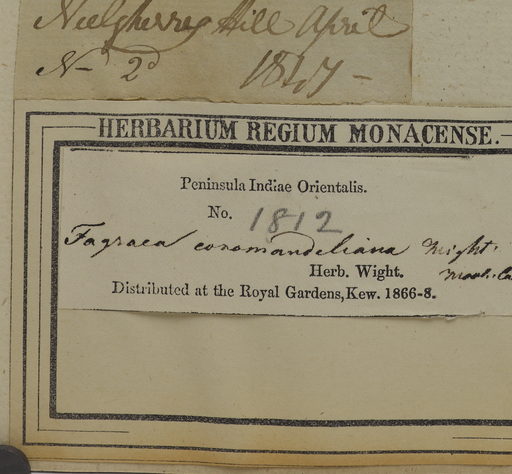 Neelgherres Hill April
N- 2d 1847 -
HERBARIUM REGIUM MONACENSE.
Peninsula Indiae Orientalis.
No. 1812
Fagraea coromandeliana Wight.
Herb. Wight.
Distributed at the Royal Gardens, Kew. 1866-8.